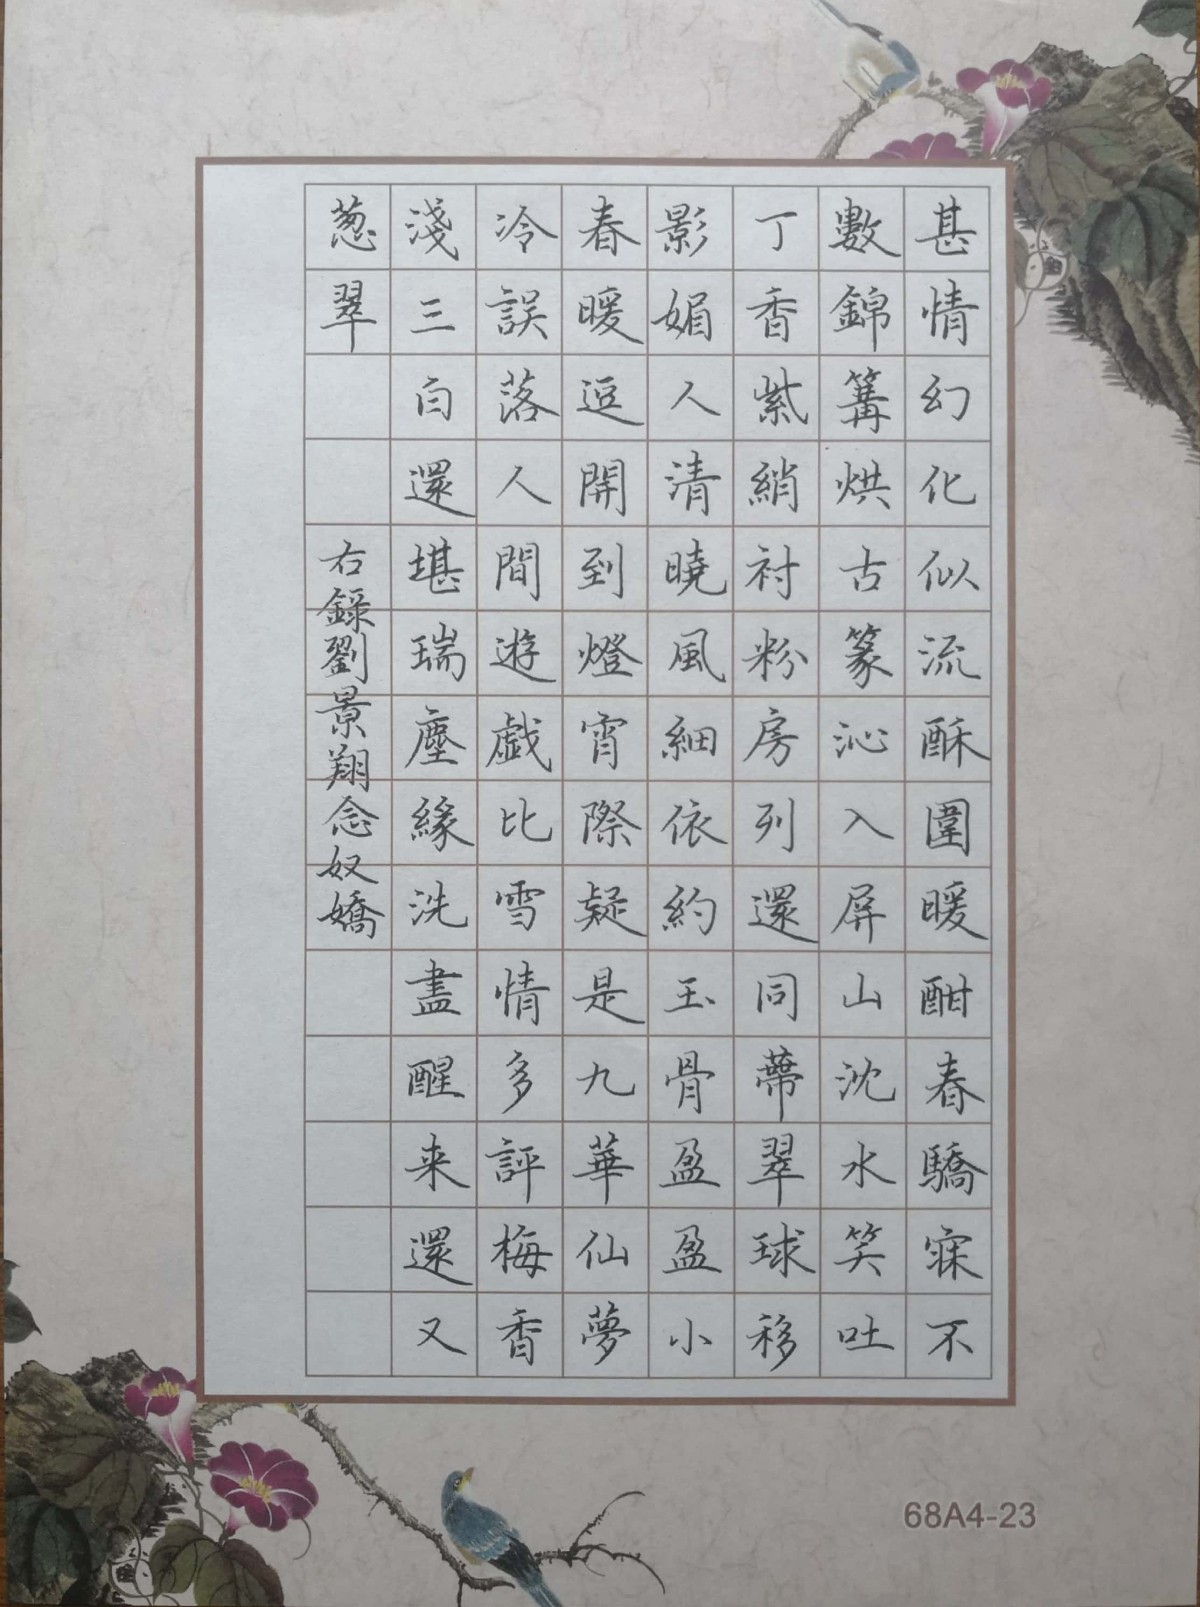 甚情幻化似流酥圍暖酣春驕寐不
數錦篝烘古篆沁入屏山沈水笑吐
丁香紫綃衬粉房列還同蔕翠球移
影媚人清曉風細依約玉骨盈盈小
春暖逗開到燈宵際疑是九華仙夢
冷誤落人間遊戲比雪情多評梅香
淺三白還堪瑞塵緣洗盡醒来還又
葱翠
右錄劉景翔念奴嬌
68A4-23